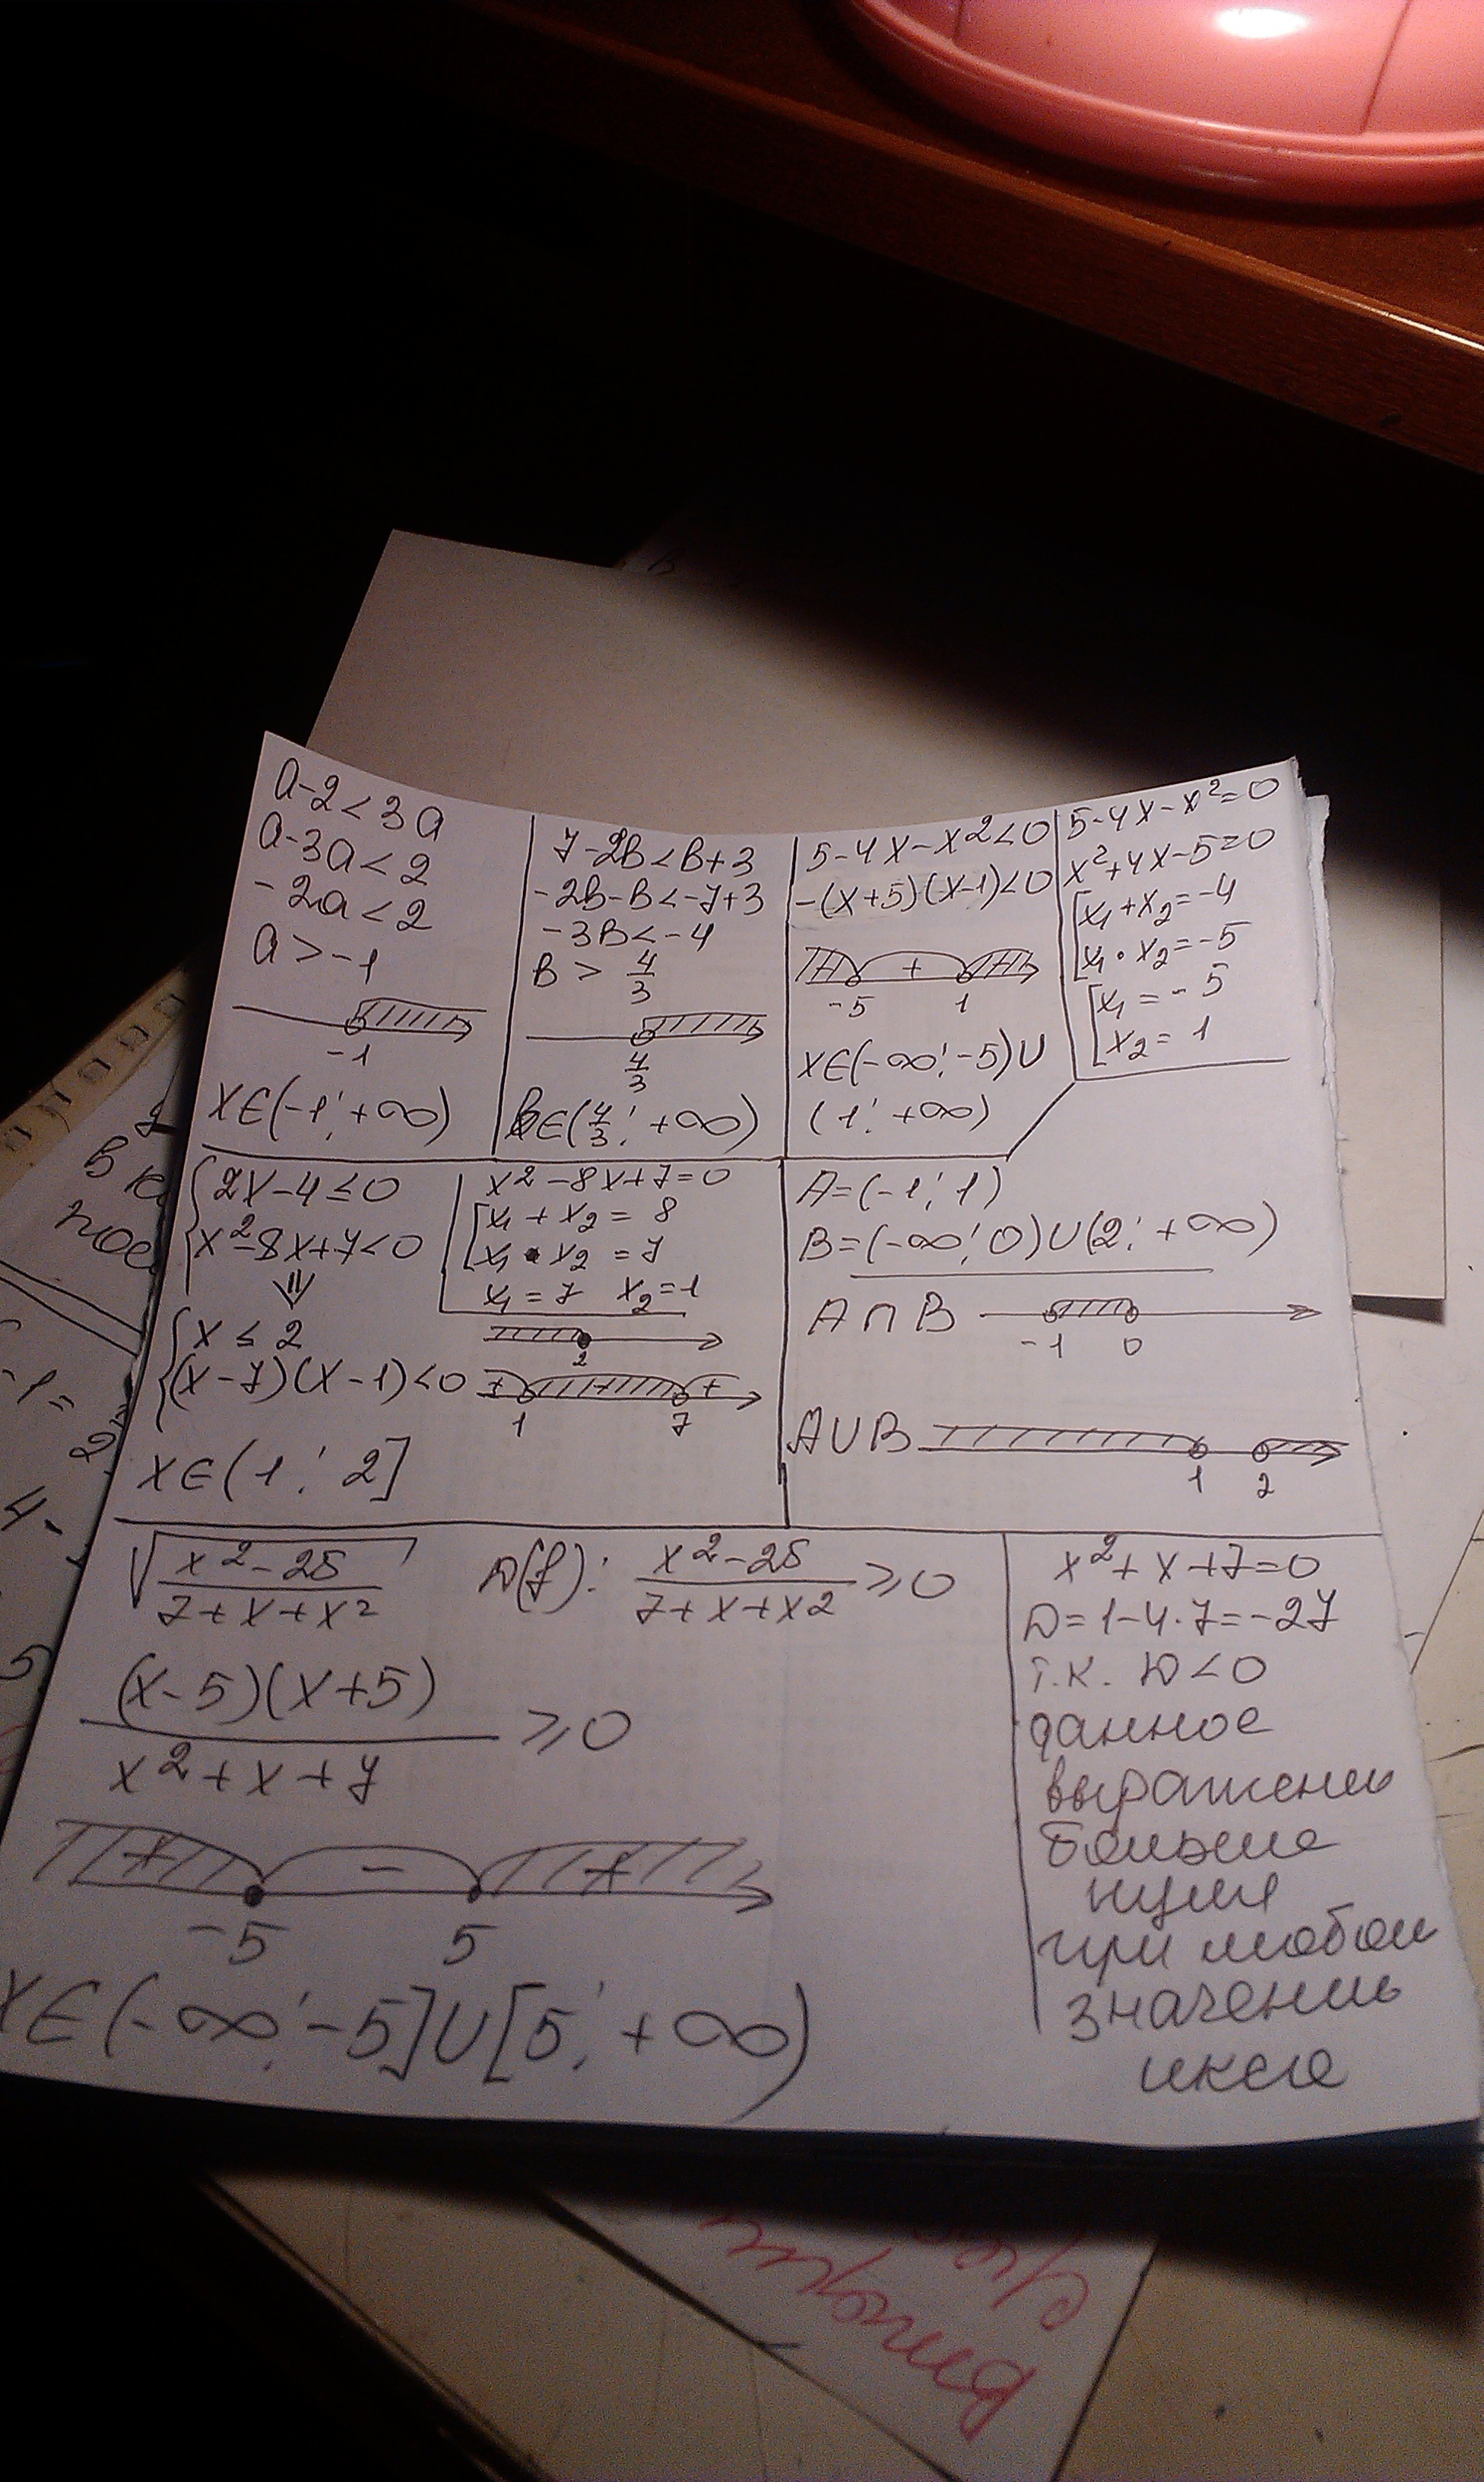 a-2<3a
a-3a<2
-2a<2
a>-1
-1
x∈(-1; +∞)
7-2в<в+3
-2в-в<-7+3
-3в<-4
в > 4/3
4/3
в∈(4/3; +∞)
5-4x-x²<0
-(x+5)(x-1)<0
+
-5 1
x∈(-∞; -5)∪
(1; +∞)
5-4x-x²=0
x²+4x-5=0
[x₁+x₂=-4
[x₁·x₂=-5
[x₁=-5
[x₂=1
{2x-4≤0
{x²-8x+7<0
⇓
{x≤2
{(x-7)(x-1)<0
x∈(1; 2]
x²-8x+7=0
[x₁+x₂=8
[x₁·x₂=7
x₁=7 x₂=1
2
+ +
1 7
A=(-1; 1)
B=(-∞; 0)∪(2; +∞)
A∩B
-1 0
A∪B
1 2
√((x²-25)/(7+x+x²)) D(f): (x²-25)/(7+x+x²) ≥0
(x-5)(x+5)/(x²+x+7) ≥0
+ - +
-5 5
x∈(-∞; -5]∪[5; +∞)
x²+x+7=0
D=1-4·7=-27
т.к. D<0
данное
выражение
больше
нуля
при любом
значении
икса